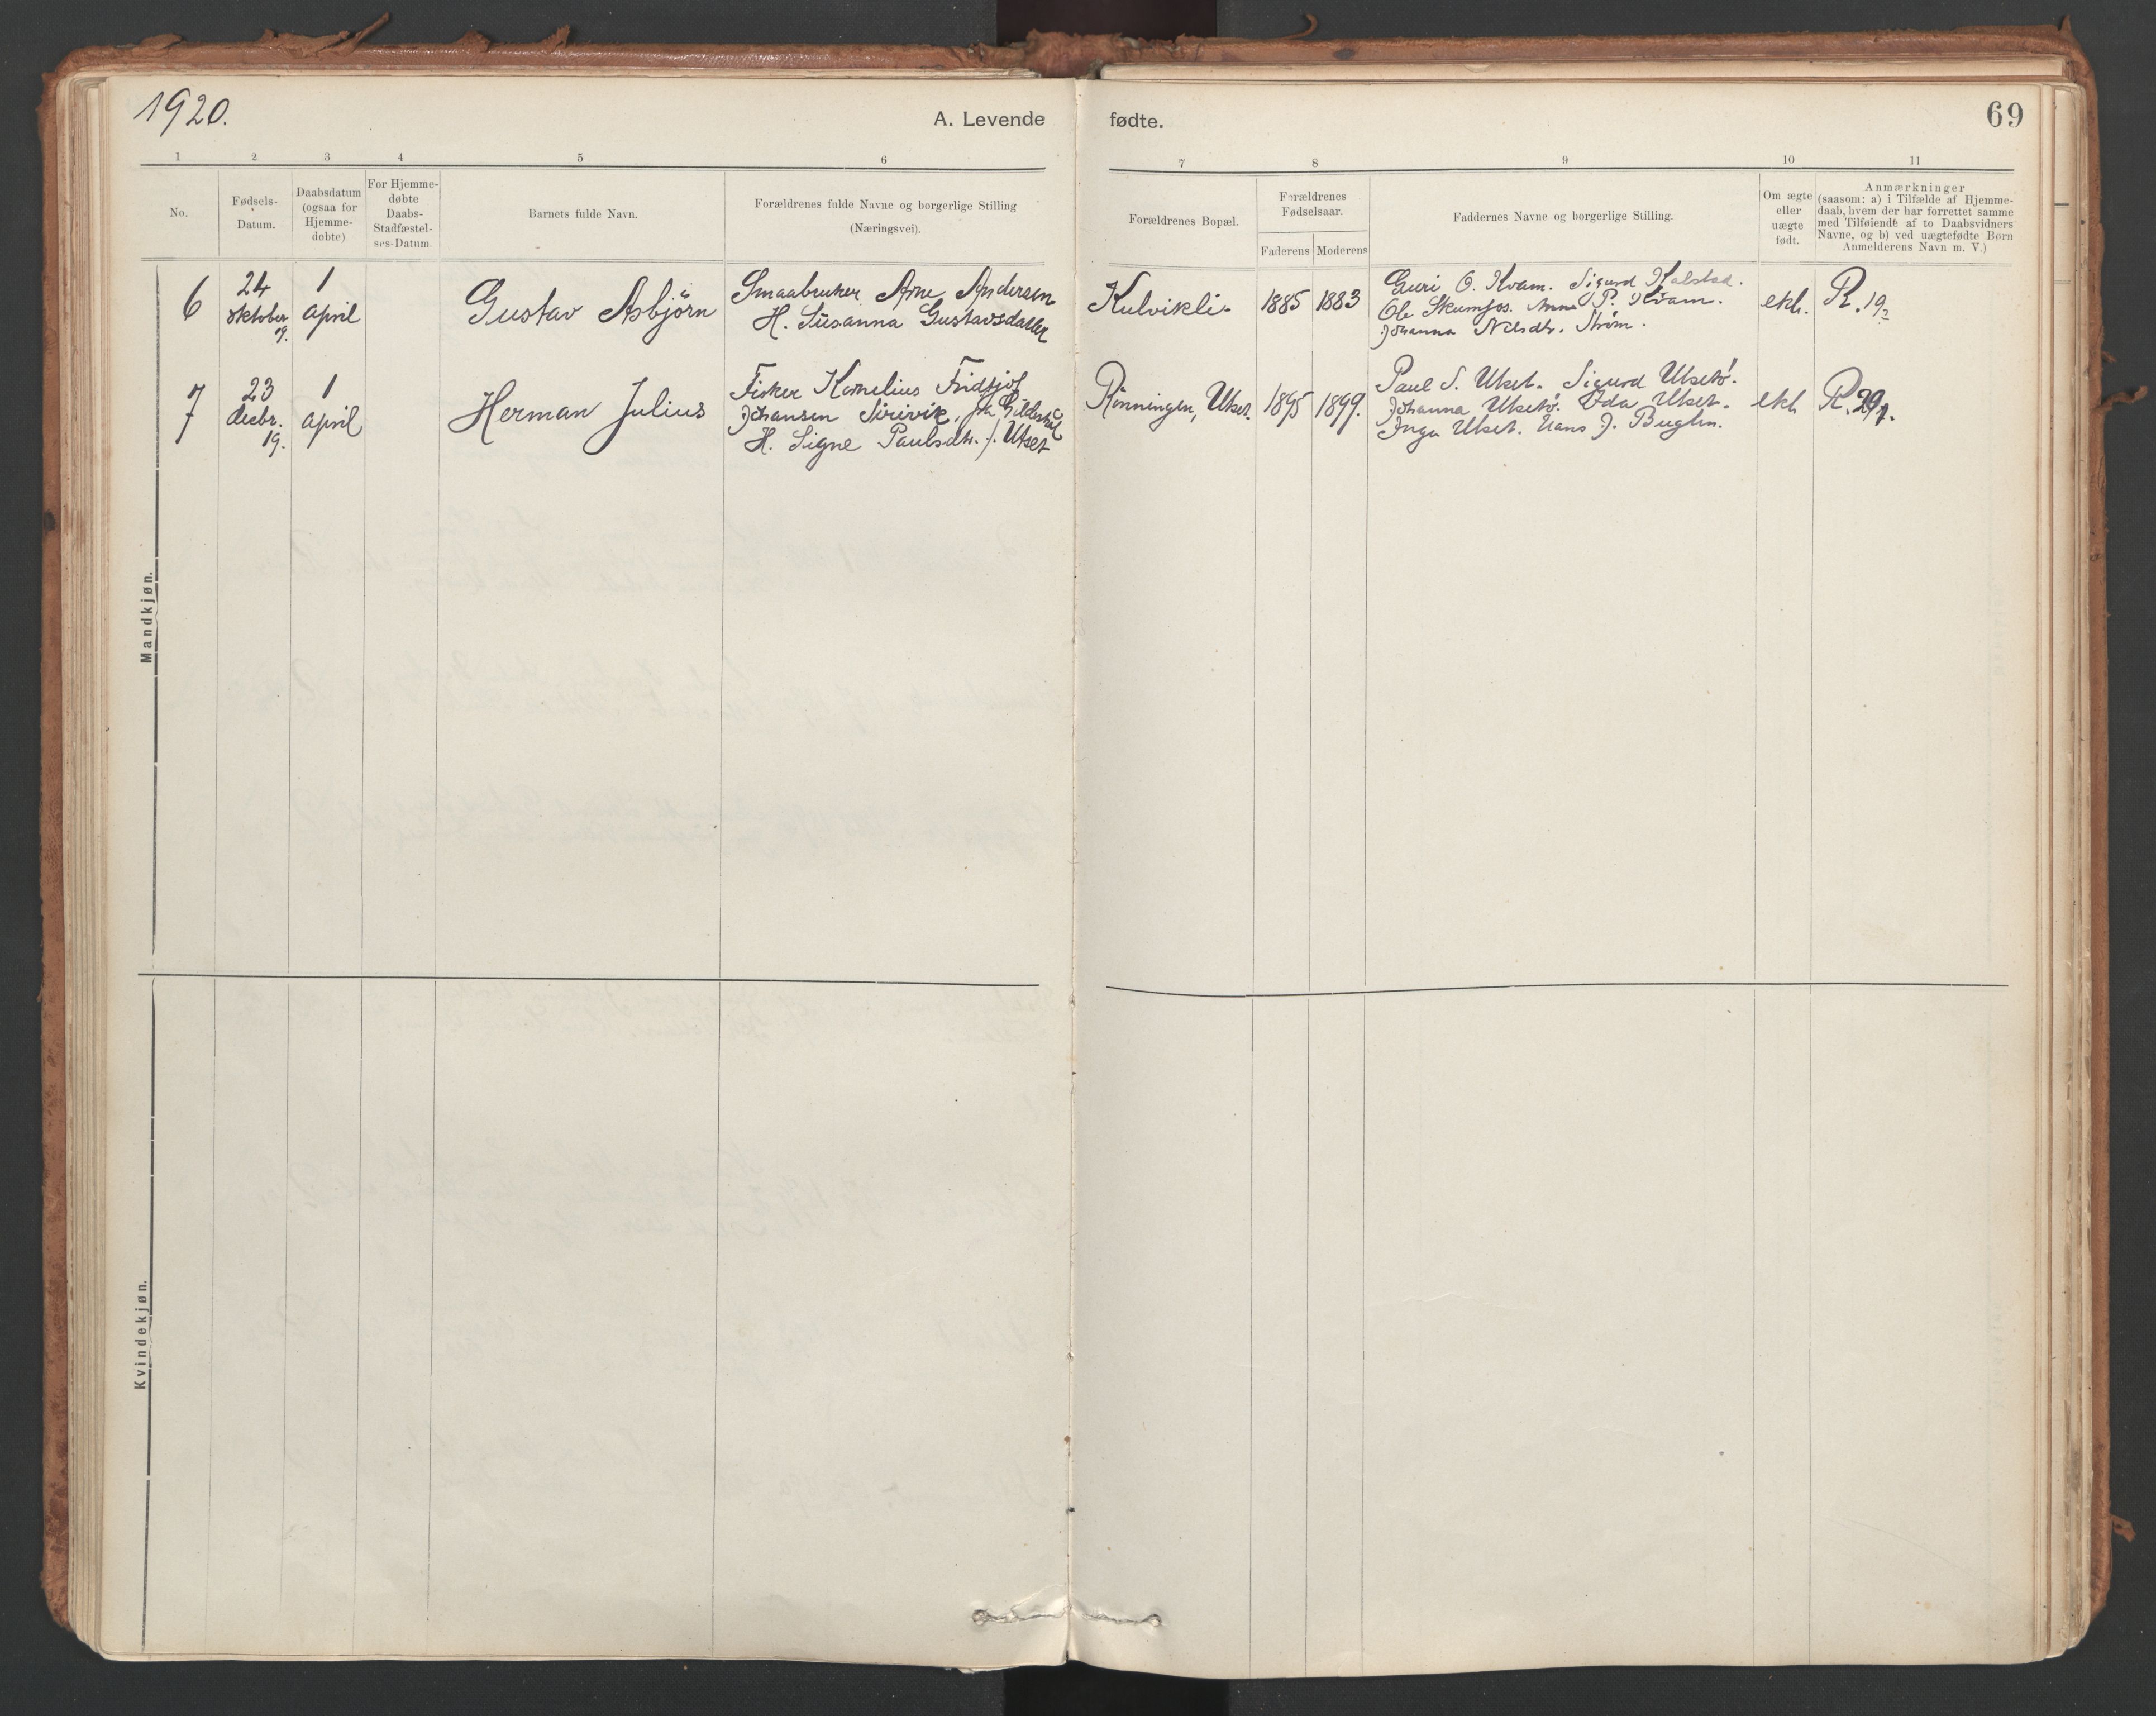 1920.
A. Levende fødte.
69
1 2 3 4 5 6 7 8 9 10 11
No.
Fødsels-
Datum.
Daabsdatum
(ogsaa for
Hjemme-
døbte)
For Hjemme-
døbte
Daabs-
Stadfæstel-
ses-Datum.
Barnets fulde Navn.
Forældrenes fulde Navne og borgerlige Stilling
(Næringsvei).
Forældrenes Bopæl.
Forældrenes
Fødselsaar.
Faderens Moderens
Faddernes Navne og borgerlige Stilling.
Om ægte
eller
uægte
født.
Anmærkninger
(saasom: a) i Tilfælde af Hjemme-
daab, hvem der har forrettet samme
med Tilføiende af to Daabsvidners
Navne, og b) ved uægtefødte Børn
Anmelderens Navn m. V.)
Mandkjøn.
6
24
oktober
19.
1
april
Gustav Asbjörn
Smaabruker Arne Andersen
H. Susanna Gustavsdatter
Kulvikli.
1885 1883
Guri O. Kvam. Sigurd Kalstad.
Ole Skumfos. Anna P. Kvam.
Johanna Nilsdtr. Strøm.
ekt.
R. 19
7
23
decbr.
19.
1
april
Herman Julius
Fisker Kornelius Fridtjof
Johansen Sørivik, fra Gildeskål
H. Signe Paulsdtr. f. Utset
Rönningen, Utset.
1895 1899.
Paul S. Utset. Sigurd Utsetö.
Johanna Utsetö. Oda Utset.
Inga Utset. Hans J. Buglen.
ekt.
R.
Kvindekjøn.